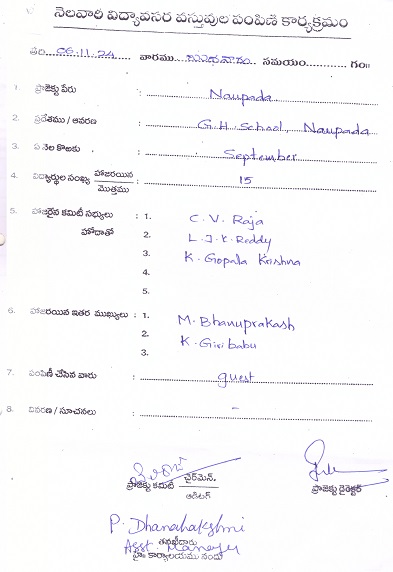 నెలవారీ విద్యావసర వస్తువుల పంపిణీ కార్యక్రమం
తేది. 06.11.24 వారము బుధవారం సమయం............గం॥
1. ప్రాజెక్టు పేరు : Naupada
2. ప్రదేశము / ఆవరణ : G.H. School, Naupada
3. ఏ నెల కొఱకు : September
4. విద్యార్థుల సంఖ్య హాజరయిన / మొత్తము : 15
5. హాజరైన కమిటీ సభ్యులు : 1. C.V. Raja
హోదాతో 2. L.J.K. Reddy
3. K. Gopala Krishna
4.
5.
6. హాజరయిన ఇతర ముఖ్యులు : 1. M. Bhanuprakash
2. K. Giribabu
3.
7. పంపిణీ చేసిన వారు : guest
8. వివరణ / సూచనలు : -
ప్రాజెక్టు కమిటీ ఛైర్మెన్. / ఆడిటర్
ప్రాజెక్టు డైరెక్టర్
P. Dhanalakshmi
Asst. Manager